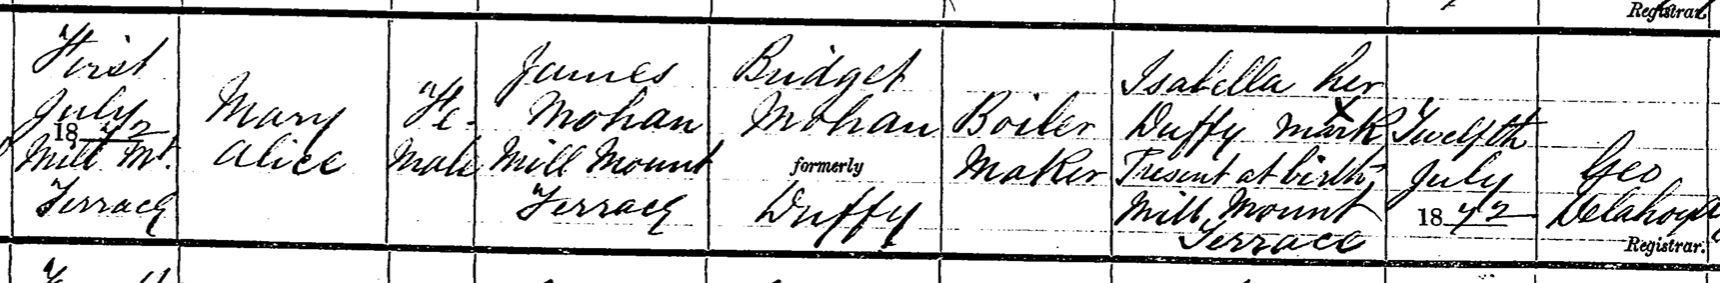 Registrar.
First
July
1872
Mill Mt.
Terrace
Mary
Alice
Fe-
male
James
Mohan
Mill Mount
Terrace
Bridget
Mohan
formerly
Duffy
Boiler
Maker
Isabella her
Duffy X mark
Present at birth
Mill Mount
Terrace
Twelfth
July
1872
Geo
Delahoyd
Registrar.